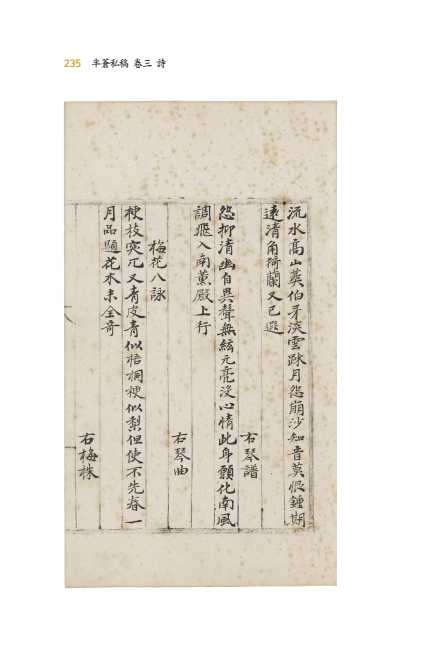 235 半蒼私稿 卷三 詩
流水高山莫伯牙淡雲疎月怨崩沙知音莫恨鍾期
遠清角猗蘭又已遐
右琴譜
怨抑清幽自異聲無絃元亮沒心情此身願化南風
調飛入南薰殿上行
右琴曲
梅花八詠
梗枝突兀又青皮青似梧桐梗似梨但使不先春一
月品題花木未全奇
右梅株